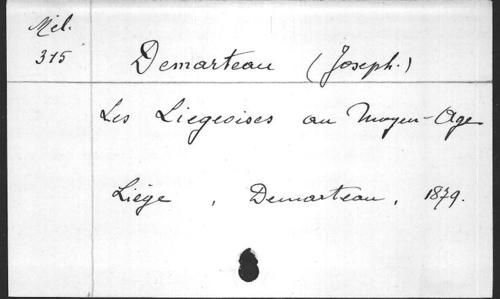 Mél.
315
Demarteau (Joseph.)
Les Liégeoises au Moyen-Age
Liége, Demarteau, 1879.